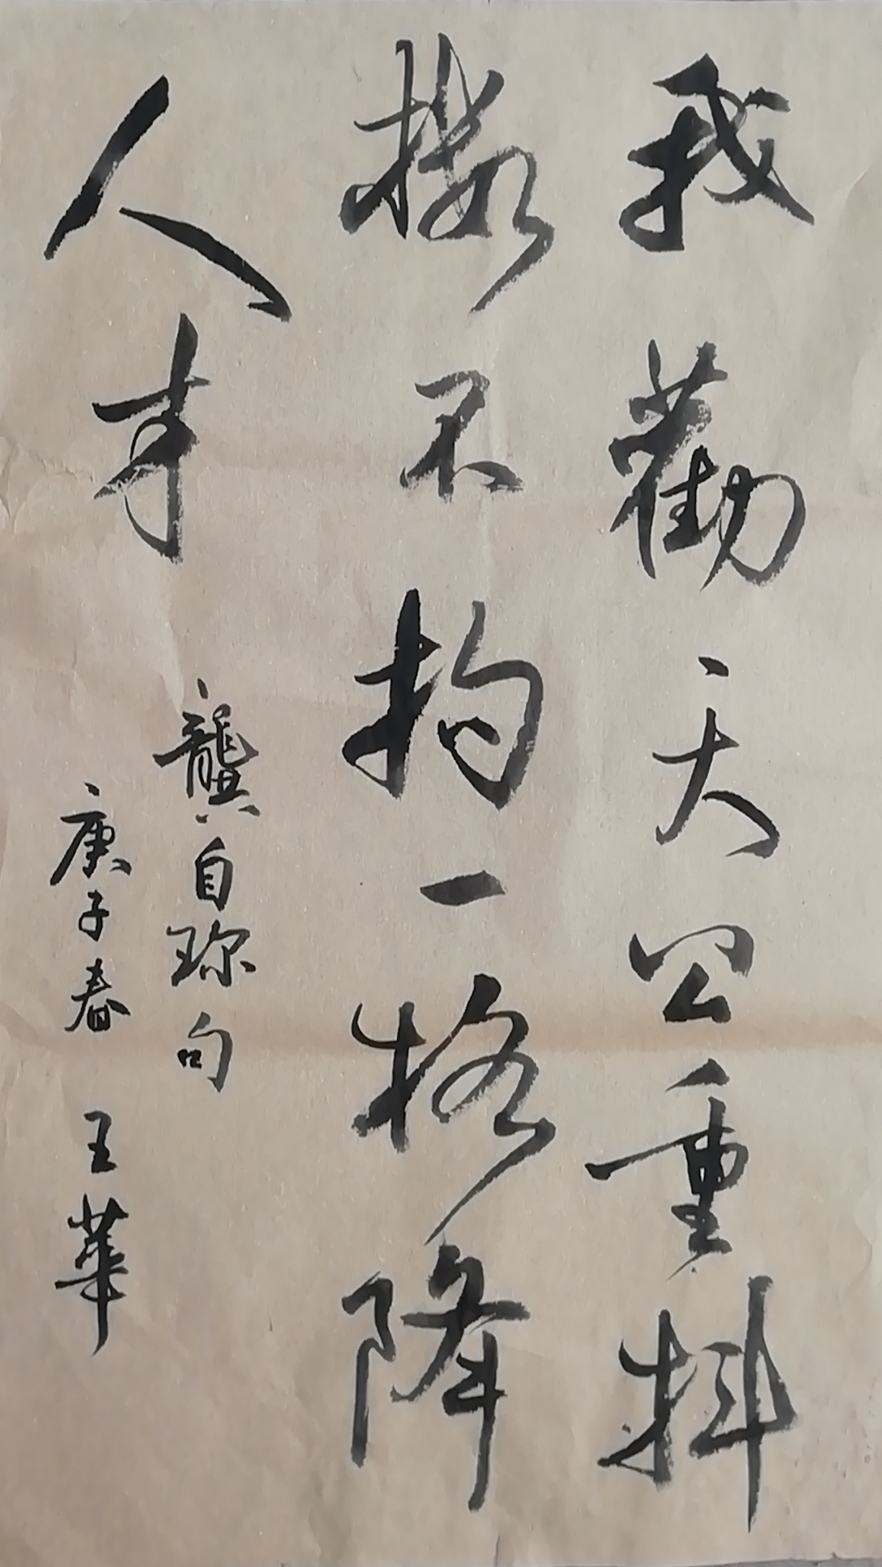 我勸天公重抖
擻不拘一格降
人才
龔自珍句
庚子春 王華